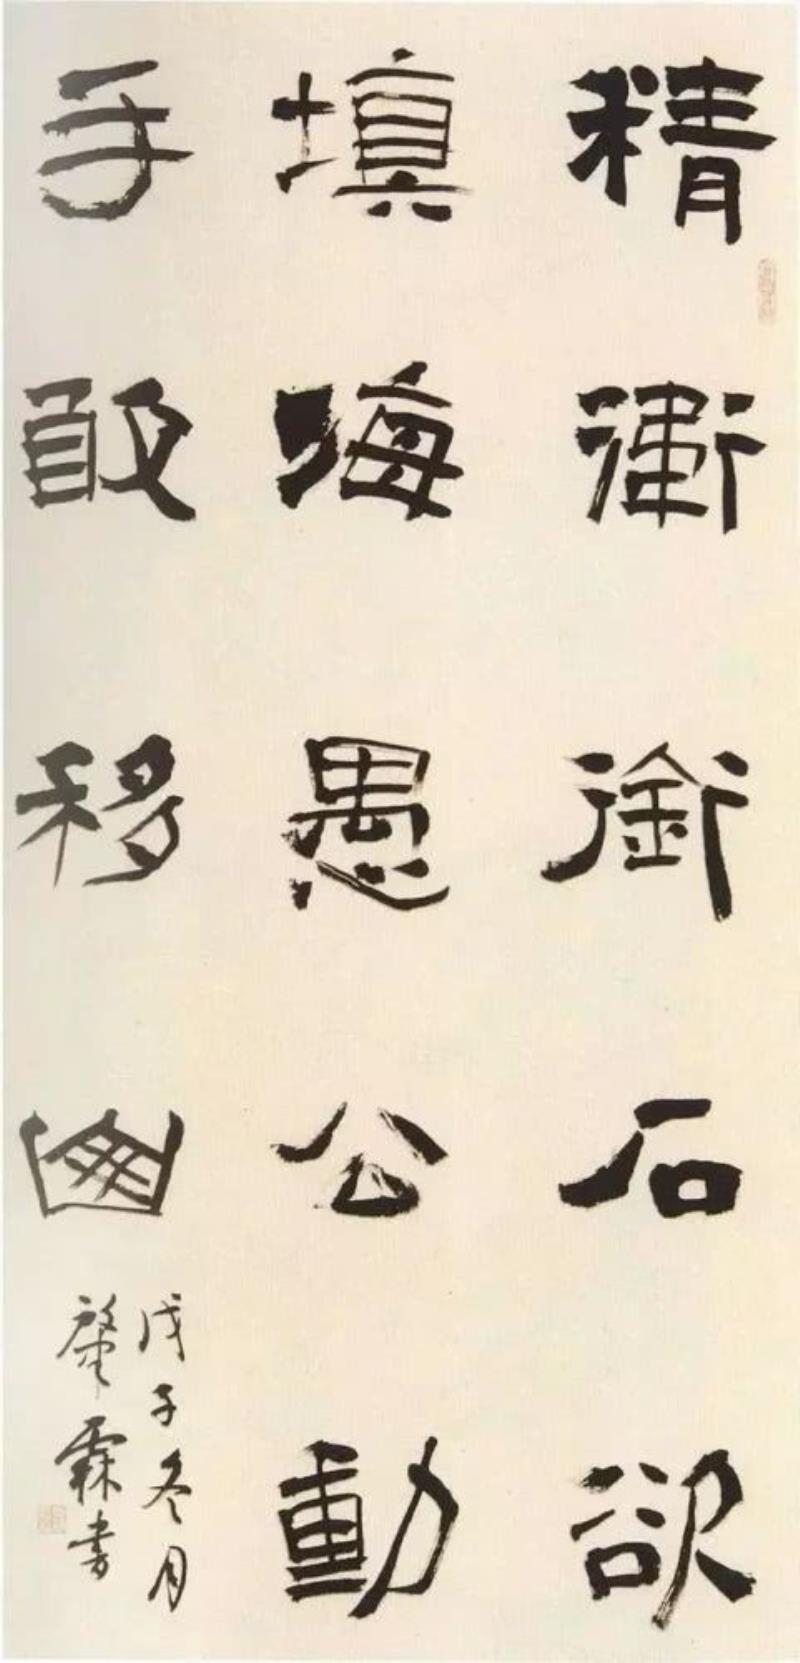 精衛銜石欲
填海愚公動
手敢移山
戊子冬月
肇霖書